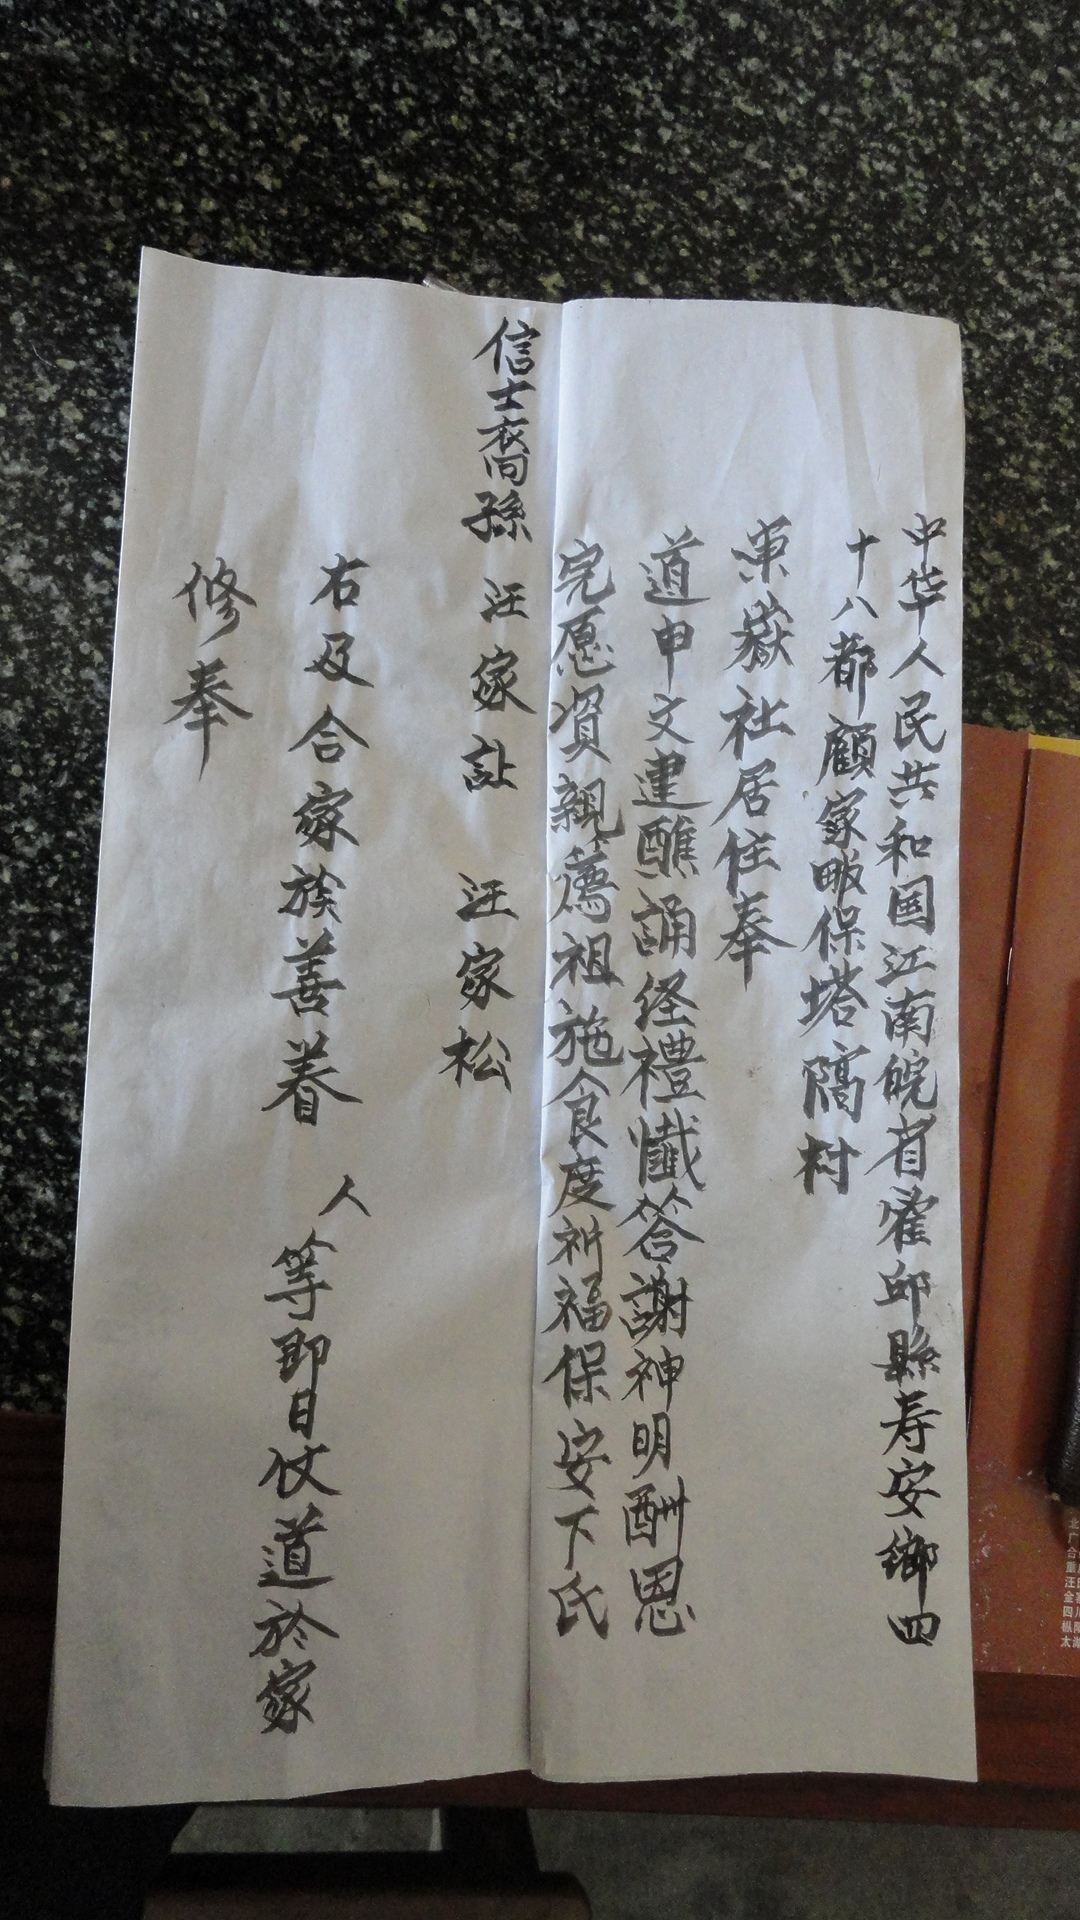 中华人民共和国江南皖省霍邱縣寿安鄉四
十八都顧家畈保塔隔村
東嶽社居住奉
道申文建醮誦経禮懺答謝神明酬恩
完愿資親薦祖施食度祈福保安下氏
信士裔孫 汪家訟 汪家松
右及合家族善眷 人等即日仗道於家
修奉